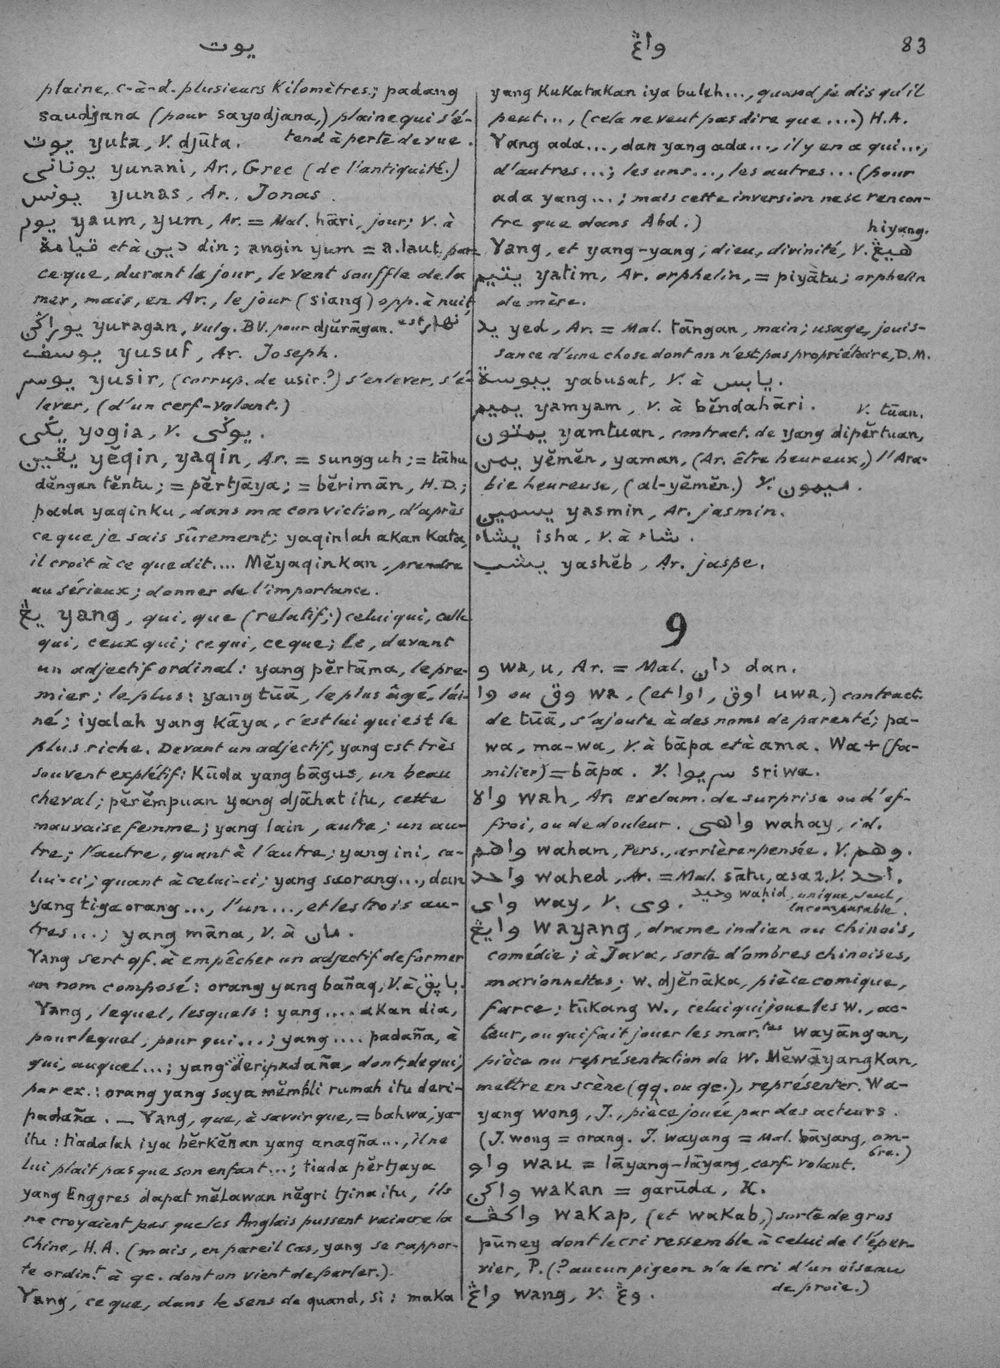 يوت
واڠ
83
plaine, c-à-d. plusieurs Kilomètres; padang
saudjana (pour sayodjana,) plaine qui s'é-
tend à perte de vue.
يوت yuta, V. djūta.
يونانى yunani, Ar., Grec (de l'antiquité.)
يونس yunas, Ar., Jonas.
يوم yaum, yum, Ar. = Mal. hāri, jour; V. à
قيامة et à دين din; angin yum = a. laut, par-
ce que, durant le jour, le vent souffle de la
mer, mais, en Ar., le jour (siang) opp. à nuit,
est نهار
يوراݢن yuragan, vulg. BV. pour djŭrāgan.
يوسف yusuf, Ar. Joseph.
يوسر yusir, (corrup. de usir?) s'enlever, s'é-
lever, (d'un cerf-volant.)
يݢى yogia, V. يوݢى.
يقين yĕqin, yaqin, Ar. = sungguh; = tāhu
dĕngan tĕntu; = pĕrtjāya; = bĕrimān, H.D.;
pada yaqinku, dans ma conviction, d'après
ce que je sais sûrement; yaqinlah akan kata,
il croit à ce que dit.... Mĕyaqinkan, prendre
au sérieux; donner de l'importance.
يڠ yang, qui, que (relatif;) celui qui, celle
qui, ceux qui; ce qui, ce que; le, devant
un adjectif ordinal: yang pĕrtāma, le pre-
mier; le plus: yang tūā, le plus âgé, l'aî-
né; iyalah yang kāya, c'est lui qui est le
plus riche. Devant un adjectif, yang est très
souvent explétif: Kūda yang bāgus, un beau
cheval; pĕrĕmpuan yang djāhat itu, cette
mauvaise femme; yang lain, autre; un au-
tre; l'autre, quant à l'autre; yang ini, ce-
lui-ci; quant à celui-ci; yang saorang..., dan
yang tiga orang..., l'un..., et les trois au-
tres...; yang māna, V. à مان.
Yang sert qf. à empêcher un adjectif de former
un nom composé: orang yang bañaq, V. à باڽق.
Yang, lequel, lesquels: yang.... akan dia,
pour lequel, pour qui...; yang.... padaña, à
qui, auquel...; yang deripadaña, dont, de qui,
par ex.: orang yang saya mĕmbli rumah itu deri-
padaña. — Yang, que, à savoir que, = bahwa, ya-
itu: tiadalah iya bĕrkĕnan yang anaqña..., il ne
lui plaît pas que son enfant...; tiada pĕrtjaya
yang Enggres dapat mĕlawan nĕgri tjina itu, ils
ne croyaient pas que les Anglais pussent vaincre la
Chine, H.A. (mais, en pareil cas, yang se rappor-
te ordint. à qc. dont on vient de parler.)
Yang, ce que, dans le sens de quand, si: maka
yang kukatakan iya buleh..., quand je dis qu'il
peut..., (cela ne veut pas dire que....) H.A.
Yang ada..., dan yang ada..., il y en a qui...,
d'autres...; les uns..., les autres... (pour
ada yang...; mais cette inversion ne se rencon-
tre que dans Abd.)
hiyang.
Yang, et yang-yang; dieu, divinité, V. هيڠ
يتيم yatim, Ar. orphelin, = piyātu; orphelin
de mère.
يد yed, Ar. = Mal. tāngan, main; usage, jouis-
sance d'une chose dont on n'est pas propriétaire, D.M.
يبوسة yabusat, V. à يابس.
يميم yamyam, V. à bĕndahāri.
V. tūan.
يمتون yamtuan, contract. de yang dipĕrtuan,
يمن yĕmĕn, yaman, (Ar. être heureux,) l'Ara-
bie heureuse, (al-yĕmĕn.) V. ميمون.
يسمين yasmin, Ar. jasmin.
يشاء isha, V. à شاء.
يشب yashĕb, Ar. jaspe.
و
و wa, u, Ar. = Mal. دان dan.
وا ou وق wa, (et اوا, اوق uwa,) contract.
de tūā, s'ajoute à des noms de parenté; pa-
wa, ma-wa, V. à bāpa et à ama. Wa + (fa-
milier) = bāpa. V. سريوا sriwa.
واه wah, Ar. exclam. de surprise ou d'ef-
froi, ou de douleur. واهى wahay, id.
واهم waham, Pers., arrière-pensée. V. وهم.
واحد wahed, Ar. = Mal. sātu, asa 2. V. احد.
وحيد wahid, unique, seul,
incomparable.
واى way, V. وى.
وايڠ wayang, drame indien ou chinois,
comédie; à Java, sorte d'ombres chinoises,
marionnettes; w. djĕnāka, pièce comique,
farce; tūkang w., celui qui joue les w., ac-
teur, ou qui fait jouer les mar.tes Wayāngan,
pièce ou représentation de w. Mĕwāyangkan,
mettre en scène (qq. ou qc.), représenter. Wa-
yang wong, J., pièce jouée par des acteurs.
(J. wong = orang. J. wayang = Mal. bāyang, om-
bre.)
واو wau = lāyang-lāyang, cerf-volant.
واكن wakan = garūda, K.
واكف wakap, (et wakab,) sorte de gros
pūney dont le cri ressemble à celui de l'éper-
vier, P. (? aucun pigeon n'a le cri d'un oiseau
de proie.)
واڠ wang, V. وڠ.